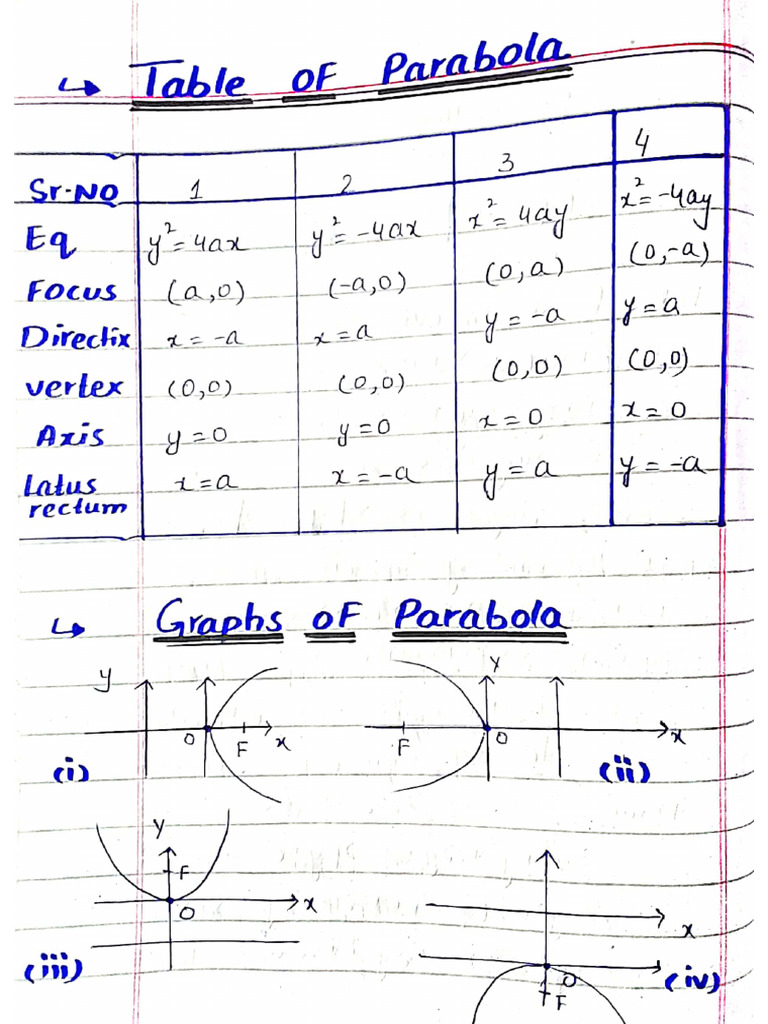 ↳ Table of Parabola
Sr.NO 1 2 3 4
Eq y²=4ax y²=-4ax x²=4ay x²=-4ay
Focus (a,0) (-a,0) (0,a) (0,-a)
Directix x=-a x=a y=-a y=a
vertex (0,0) (0,0) (0,0) (0,0)
Axis y=0 y=0 x=0 x=0
Latus rectum x=a x=-a y=a y=-a
↳ Graphs of Parabola
y Y
O F x F O x
(i) (ii)
Y
F
O x x
(iii) O (iv)
F